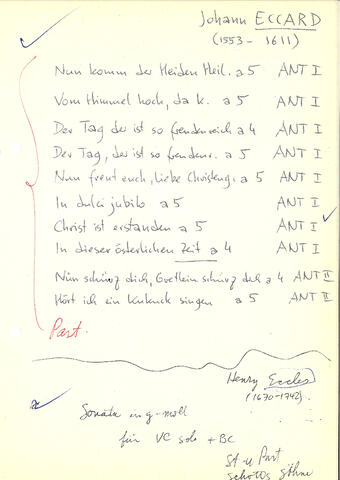 Johann ECCARD
(1553 - 1611)
Nun komm der Heiden Heil. a 5 ANT I
Vom Himmel hoch, da k. a 5 ANT I
Der Tag der ist so freudenreich a 4 ANT I
Der Tag, der ist so freudenr. a 5 ANT I
Nun freut euch, liebe Christeng. a 5 ANT I
In dulci jubilo a 5 ANT I
Christ ist erstanden a 5 ANT I
In dieser österlichen Zeit a 4 ANT I
Nun schürz dich, Gretlein schürz dich a 4 ANT II
Hört ich ein Kukuck singen a 5 ANT II
Part.
Henry Eccles
(1670-1742).
Sonata in g-moll
für VC solo + BC
St u Part
Schotts Söhne